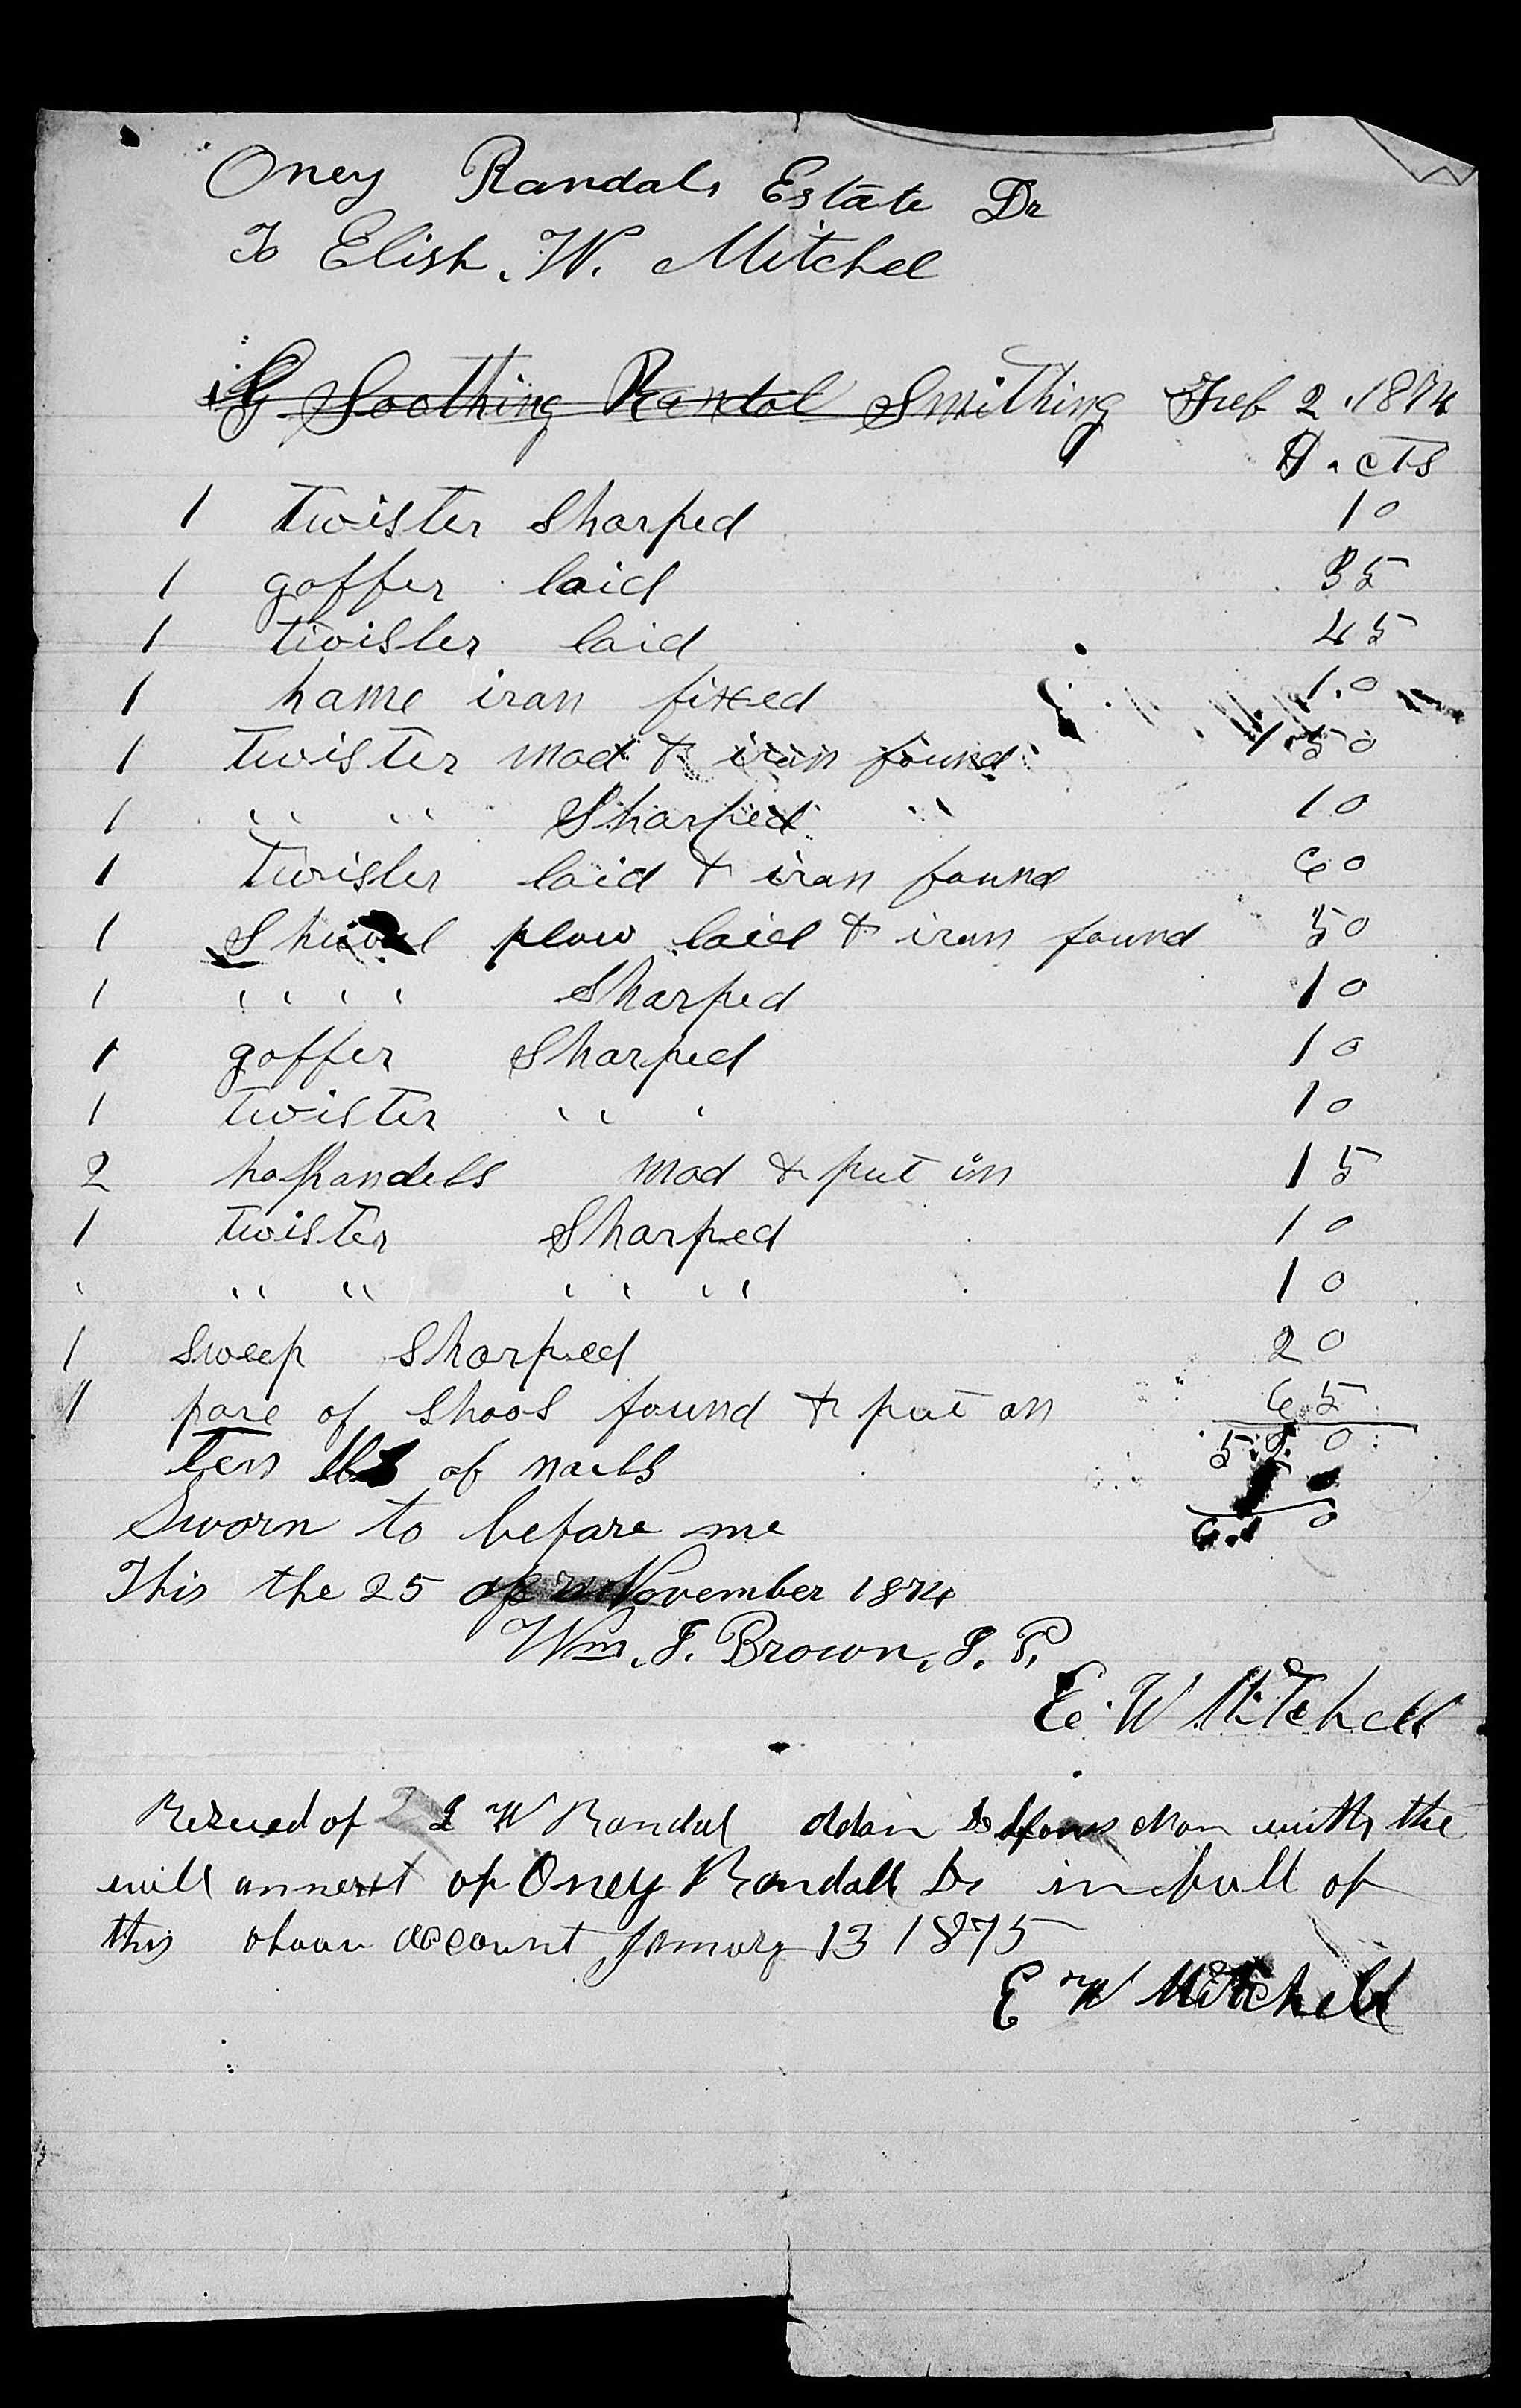 Oney Randals Estate Dr
To Elish. W. Mitchel
Soothing Randol Smithing Feb 2. 1874
$ . cts
1 twister Sharped 10
1 goffer laid 35
1 twister laid 45
1 hame iran fixed 1.0
1 twister mad & iran found 1.50
1 " " Sharped " 10
1 twister laid & iran found 60
1 Shuvel plow laid & iran found 50
1 " " Sharped 10
1 goffer Sharped 10
1 twister " 10
2 hofhandels mad & put in 15
1 twister Sharped 10
" " " " " 10
1 Sweep Sharped 20
1 pare of Shoos found & put on 65
ten lbs of nails
Sworn to before me
This the 25 of November 1874
Wm. J. Brown, J. P.
E. W Mitchell
Recued of W Randal with the
will annext of Oney Randall in full of
this account January 13 1875
E W Mitchell